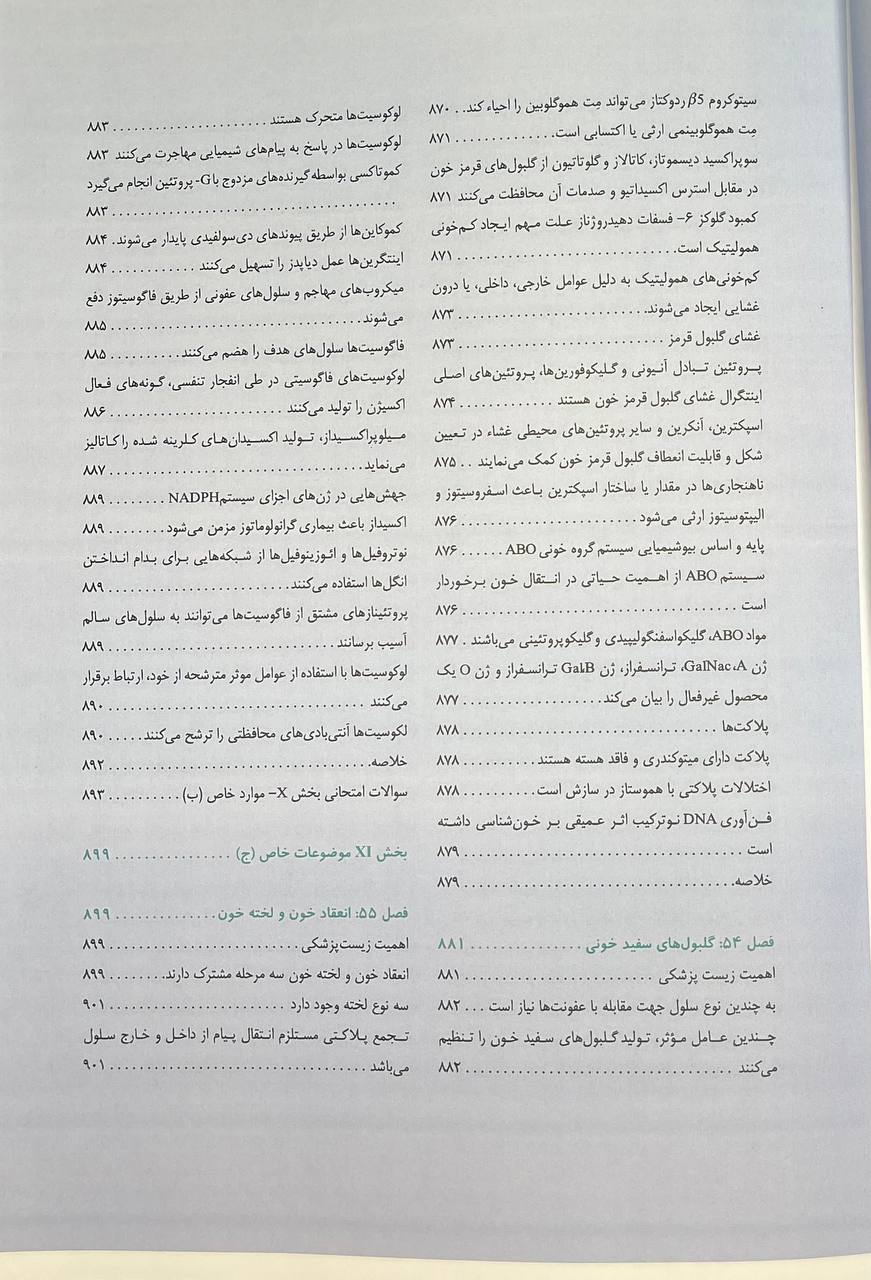 سیتوکروم β5 ردوکتاز می‌تواند مِت هموگلوبین را احیاء کند. . ۸۷۰
مِت هموگلوبینمی ارثی یا اکتسابی است. . . . . . . . . . . . . . ۸۷۱
سوپراکسید دیسموتاز، کاتالاز و گلوتاتیون از گلبول‌های قرمز خون
در مقابل استرس اکسیداتیو و صدمات آن محافظت می‌کنند ۸۷۱
کمبود گلوکز ۶- فسفات دهیدروژناز علت مهم ایجاد کم‌خونی
همولیتیک است. . . . . . . . . . . . . . . . . . . . . . . . . . . . ۸۷۱
کم‌خونی‌های همولیتیک به دلیل عوامل خارجی، داخلی، یا درون
غشایی ایجاد می‌شوند. . . . . . . . . . . . . . . . . . . . . . . . ۸۷۳
غشای گلبول قرمز . . . . . . . . . . . . . . . . . . . . . . . . . . ۸۷۳
پروتئین تبادل آنیونی و گلیکوفورین‌ها، پروتئین‌های اصلی
اینتگرال غشای گلبول قرمز خون هستند . . . . . . . . . . . . ۸۷۴
اسپکترین، آنکرین و سایر پروتئین‌های محیطی غشاء در تعیین
شکل و قابلیت انعطاف گلبول قرمز خون کمک می‌نمایند . . ۸۷۵
ناهنجاری‌ها در مقدار یا ساختار اسپکترین باعث اسفروسیتوز و
الیپتوسیتوز ارثی می‌شود . . . . . . . . . . . . . . . . . . . . . . ۸۷۶
پایه و اساس بیوشیمیایی سیستم گروه خونی ABO . . . . . . ۸۷۶
سیستم ABO از اهمیت حیاتی در انتقال خون برخوردار
است . . . . . . . . . . . . . . . . . . . . . . . . . . . . . . . . . . . ۸۷۶
مواد ABO، گلیکواسفنگولیپیدی و گلیکوپروتئینی می‌باشند . ۸۷۷
ژن GalNac،A، ترانسفراز، ژن GalB ترانسفراز و ژن O یک
محصول غیرفعال را بیان می‌کند. . . . . . . . . . . . . . . . . . . ۸۷۷
پلاکت‌ها . . . . . . . . . . . . . . . . . . . . . . . . . . . . . . . . ۸۷۸
پلاکت دارای میتوکندری و فاقد هسته هستند . . . . . . . . . . ۸۷۸
اختلالات پلاکتی با هموستاز در سازش است. . . . . . . . . . . ۸۷۸
فن‌آوری DNA نوترکیب اثر عمیقی بر خون‌شناسی داشته
است . . . . . . . . . . . . . . . . . . . . . . . . . . . . . . . . . . . ۸۷۹
خلاصه. . . . . . . . . . . . . . . . . . . . . . . . . . . . . . . . . . ۸۷۹
فصل ۵۴: گلبول‌های سفید خونی . . . . . . . . . . . . . . . ۸۸۱
اهمیت زیست پزشکی . . . . . . . . . . . . . . . . . . . . . . . . ۸۸۱
به چندین نوع سلول جهت مقابله با عفونت‌ها نیاز است . . . ۸۸۲
چندین عامل مؤثر، تولید گلبول‌های سفید خون را تنظیم
می‌کنند . . . . . . . . . . . . . . . . . . . . . . . . . . . . . . . . . ۸۸۲
لوکوسیت‌ها متحرک هستند . . . . . . . . . . . . . . . . . . . . . ۸۸۳
لوکوسیت‌ها در پاسخ به پیام‌های شیمیایی مهاجرت می‌کنند ۸۸۳
کموتاکسی بواسطه گیرنده‌های مزدوج با G- پروتئین انجام می‌گیرد
. . . . . . . . . . . . . . . . . . . . . . . . . . . . . . . . . . . . . . . ۸۸۳
کموکاین‌ها از طریق پیوندهای دی‌سولفیدی پایدار می‌شوند. ۸۸۴
اینتگرین‌ها عمل دیاپدز را تسهیل می‌کنند . . . . . . . . . . . . ۸۸۴
میکروب‌های مهاجم و سلول‌های عفونی از طریق فاگوسیتوز دفع
می‌شوند. . . . . . . . . . . . . . . . . . . . . . . . . . . . . . . . . ۸۸۵
فاگوسیت‌ها سلول‌های هدف را هضم می‌کنند. . . . . . . . . . . ۸۸۵
لوکوسیت‌های فاگوسیتی در طی انفجار تنفسی، گونه‌های فعال
اکسیژن را تولید می‌کنند . . . . . . . . . . . . . . . . . . . . . . . ۸۸۶
میلوپراکسیداز، تولید اکسیدان‌های کلرینه شده را کاتالیز
می‌نماید. . . . . . . . . . . . . . . . . . . . . . . . . . . . . . . . . ۸۸۷
جهش‌هایی در ژن‌های اجزای سیستمNADPH . . . . . . . . ۸۸۹
اکسیداز باعث بیماری گرانولوماتوز مزمن می‌شود. . . . . . . . ۸۸۹
نوتروفیل‌ها و ائوزینوفیل‌ها از شبکه‌هایی برای بدام انداختن
انگل‌ها استفاده می‌کنند. . . . . . . . . . . . . . . . . . . . . . . . ۸۸۹
پروتئینازهای مشتق از فاگوسیت‌ها می‌توانند به سلول‌های سالم
آسیب برسانند . . . . . . . . . . . . . . . . . . . . . . . . . . . . . ۸۸۹
لوکوسیت‌ها با استفاده از عوامل موثر مترشحه از خود، ارتباط برقرار
می‌کنند . . . . . . . . . . . . . . . . . . . . . . . . . . . . . . . . . ۸۹۰
لکوسیت‌ها آنتی‌بادی‌های محافظتی را ترشح می‌کنند. . . . . ۸۹۰
خلاصه. . . . . . . . . . . . . . . . . . . . . . . . . . . . . . . . . . ۸۹۲
سوالات امتحانی بخش X- موارد خاص (ب) . . . . . . . . . . ۸۹۳
بخش XI موضوعات خاص (ج) . . . . . . . . . . . . . . . . ۸۹۹
فصل ۵۵: انعقاد خون و لخته خون. . . . . . . . . . . . . . . ۸۹۹
اهمیت زیست‌پزشکی . . . . . . . . . . . . . . . . . . . . . . . . ۸۹۹
انعقاد خون و لخته خون سه مرحله مشترک دارند. . . . . . . . ۸۹۹
سه نوع لخته وجود دارد . . . . . . . . . . . . . . . . . . . . . . . ۹۰۱
تجمع پلاکتی مستلزم انتقال پیام از داخل و خارج سلول
می‌باشد . . . . . . . . . . . . . . . . . . . . . . . . . . . . . . . . . ۹۰۱